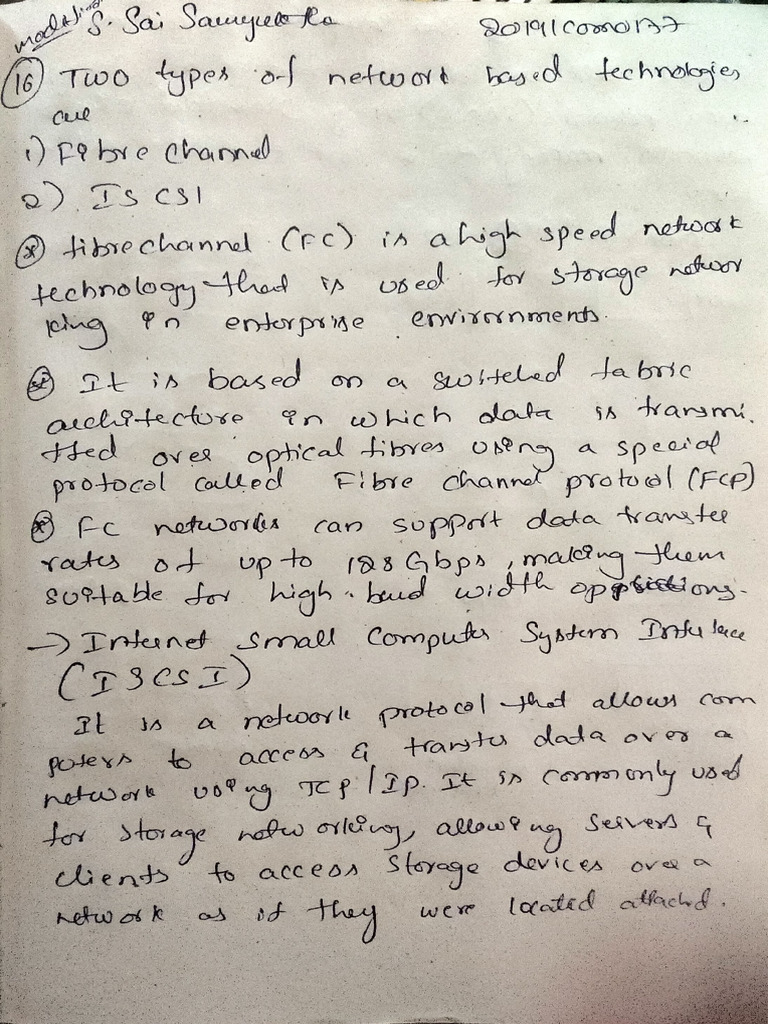 S. Sai
(16) Two types of network based technologies
are
1) Fibre channel
2) ISCSI
* fibrechannel (FC) is a high speed network
technology that is used for storage networ
king in enterprise envirornments.
* It is based on a switched fabric
architecture in which data is transmi.
tted over optical fibres using a special
protocol called Fibre channel protocol (FCP)
* FC networks can support data transfer
rates of up to 128 Gbps, making them
suitable for high-band width
→ Internet Small Computer System Interface
(ISCSI)
It is a network protocol that allows com
puters to access & transfer data over a
network using TCP/IP. It is commonly used
for storage networking, allowing servers &
clients to access storage devices over a
network as if they were located attached.